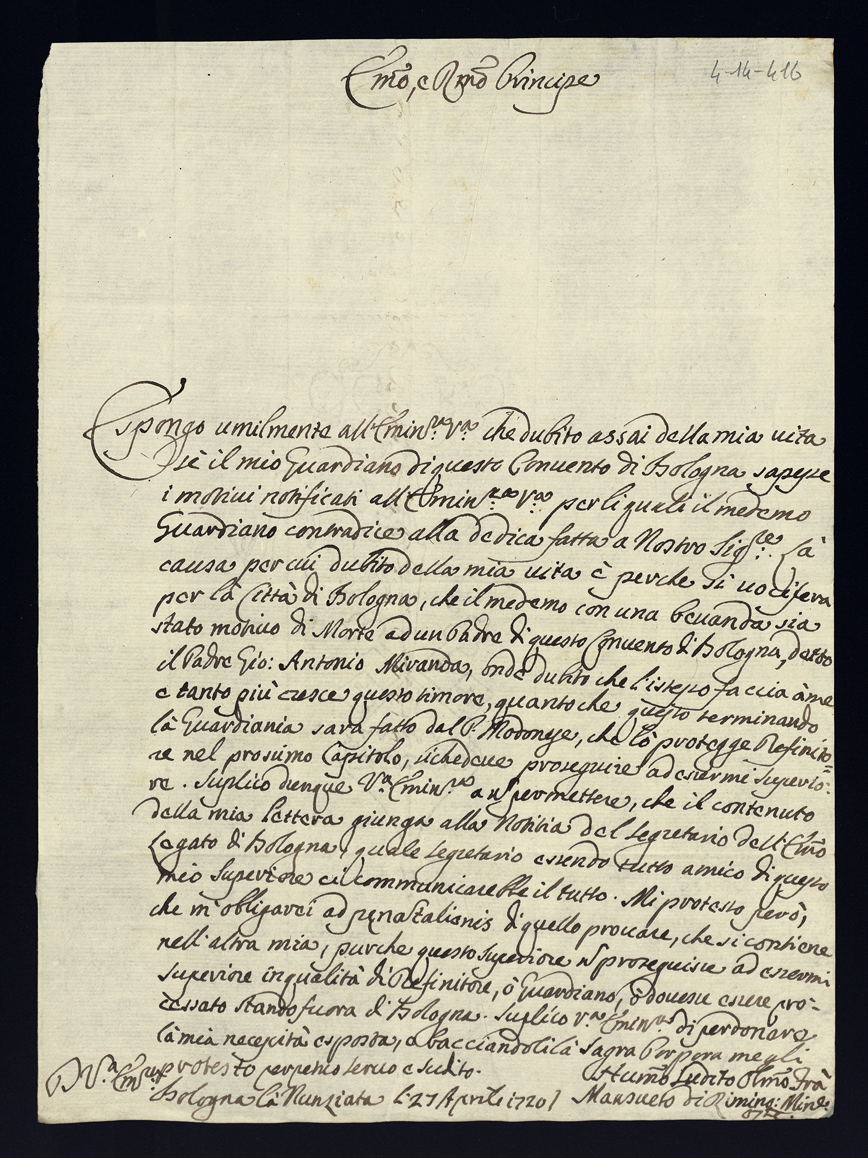 4-14-416
Em̃o, e Rm̃o Principe
Espongo umilmente all'Emin.za V.ra che dubito assai della mia uita
se il mio Guardiano di questo Conuento di Bologna sapesse
i motiui notificati all'Emin.za V.ra per li quali il medemo
Guardiano contradice alla dedica fatta a Nostro Sig.re. La
causa per cui dubito della mia uita è perche si uocifera
per la Città di Bologna, che il medemo con una beuanda sia
stato motiuo di Morte ad un Padre di questo Conuento di Bologna, detto
il Padre Gio: Antonio Miranda, onde dubito che l'istesso faccia à me
e tanto più cresce questo timore, quanto che questo terminando
la Guardiania sara fatto dal P. Modonese, che lo protegge Refinito=
re nel prosimo Capitolo, siche deue proseguire ad essermi superio=
re. Suplico dunque V.ra Emin.za a nõ permettere, che il contenuto
della mia lettera giunga alla Notitia del Segretario dell'Em̃o
Legato di Bologna, quale segretario essendo tutto amico di questo
mio Superiore ci communicarebbe il tutto. Mi protesto però,
che m'obligarei ad penã talionis di quello prouare, che si contiene
nell'altra mia, purche questo superiore nõ proseguisse ad essermi
superiore in qualità di Refinitore, ò Guardiano, ò douesse essere pro=
cessato stando fuora di Bologna. Suplico V.ra Emin.za di perdonare
la mia necessità esposta, e bacciandoli la Sagra Porpora me gli
protesto perpetuo seruo e sudito.
D V.ra Em.za
Humõ Sudito Olm̃o Frà
Bologna la Nunziata li 27 Aprile 1720 Mansueto di Rimino: Min:e